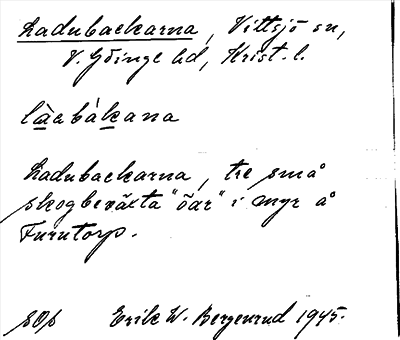 Ladubackarna, Vittsjö sn,
V. Göinge hd, Krist. l.
làebákana
Ladubackarna, tre små
skogbeväxta "öar" i myr å
Furutorp.
Erik W. Bergenrud 1945.